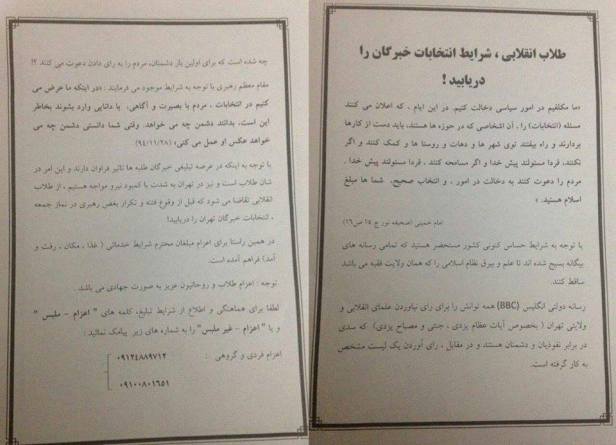 طلاب انقلابی ، شرایط انتخابات خبرگان را
دریابید !
«ما مکلفیم در امور سیاسی دخالت کنیم. در این ایام ، که اعلان می کنند
مسئله (انتخابات) را ، آن اشخاصی که در حوزه ها هستند، باید دست از کارها
بردارند و راه بیفتند توی شهر ها و دهات و روستا ها و کمک کنند و اگر
نکنند، فردا مسئولند پیش خدا و اگر مسامحه کنند ، فردا مسئولند پیش خدا .
مردم را دعوت کنند به دخالت در امور ، و انتخاب صحیح. شما ها مبلغ
اسلام هستید. »
امام خمینی (صحیفه نور ج ۲۵ ص۱۶)
با توجه به شرایط حساس کنونی کشور مستحضر هستید که تمامی رسانه های
بیگانه بسیج شده اند تا علم و بیرق نظام اسلامی را که همان ولایت فقیه می باشد
ساقط کنند.
رسانه دولتی انگلیس (BBC) همه توانش را برای رای نیاوردن علمای انقلابی و
ولایتی تهران ( بخصوص آیات عظام یزدی ، جنتی و مصباح یزدی) که سدی
در برابر نفوذیان و دشمنان هستند و در مقابل ، رای آوردن یک لیست مشخص
به کار گرفته است.
چه شده است که برای اولین بار دشمنان، مردم را به رای دادن دعوت می کنند ؟!
مقام معظم رهبری با توجه به شرایط موجود می فرمایند : «در اینکه ما عرض می
کنیم در انتخابات ، مردم با بصیرت و آگاهی، با دانایی وارد بشوند بخاطر
این است، بدانند دشمن چه می خواهد. وقتی شما دانستی دشمن چه می
خواهد عکس او عمل می کنی» (۹۴/۱۱/۲۸)
با توجه به اینکه در عرصه تبلیغی خبرگان طلبه ها تاثیر فراوان دارند و این امر در
شان طلاب است و نیز در تهران به شدت با کمبود نیرو مواجه هستیم ، از طلاب
انقلابی تقاضا می شود که قبل از وقوع فتنه و تکرار بغض رهبری در نماز جمعه
، انتخابات خبرگان تهران را دریابید!
در همین راستا برای اعزام مبلغان محترم شرایط خدماتی ( غذا ، مکان ، رفت و
آمد) فراهم آمده است.
توجه : اعزام طلاب و روحانیون عزیز به صورت جهادی می باشد .
لطفا برای هماهنگی و اطلاع از شرایط تبلیغ، کلمه های " اعزام - ملبس "
و یا " اعزام - غیر ملبس" را به شماره های زیر پیامک نمائید :
اعزام فردی و گروهی : ۰۹۱۲۴۸۸۹۷۱۲
۰۹۱۰۰۸۰۱۶۵۱